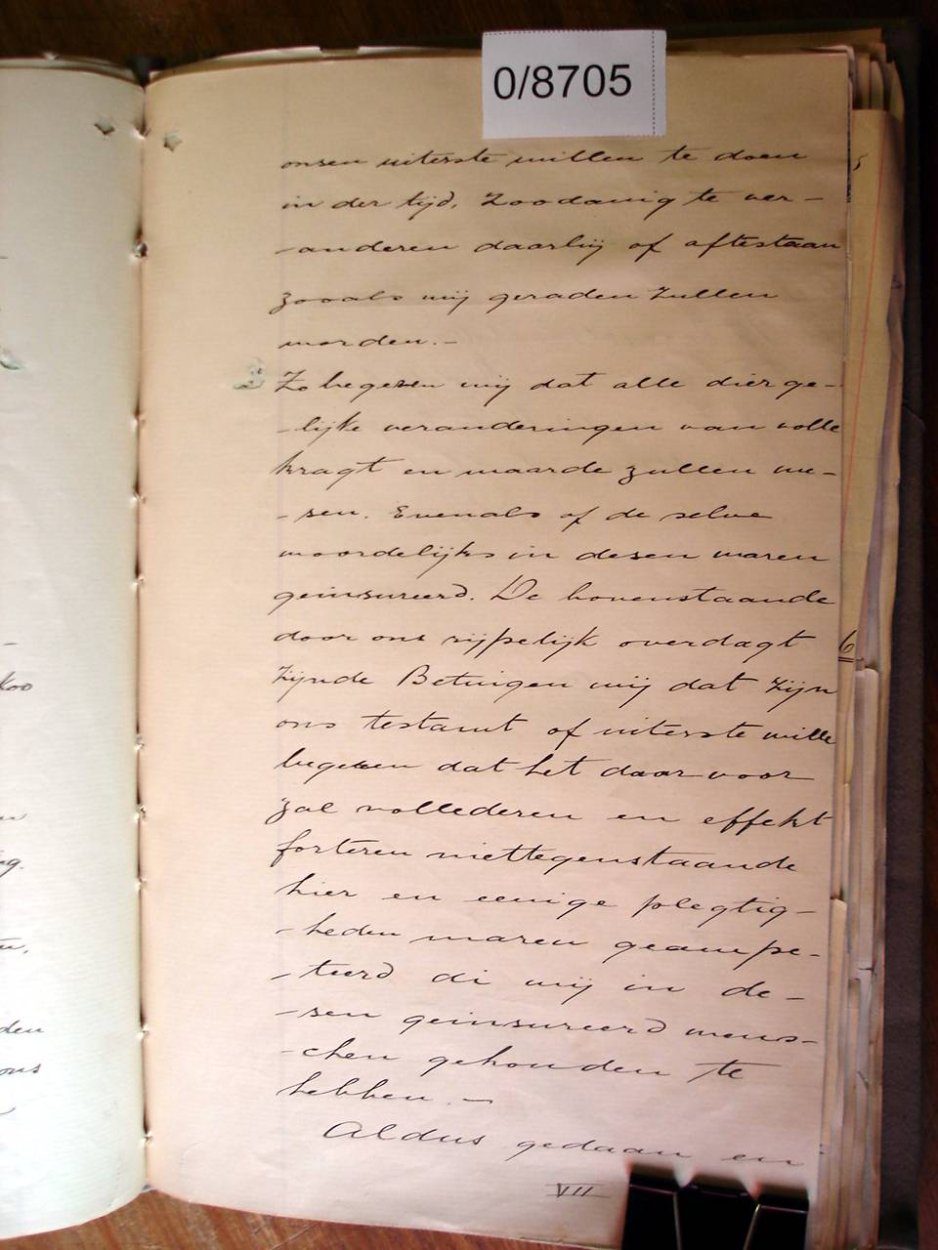 0/8705
onsen uiterste willen te doen
in der tijd, Zoodanig te ver-
-anderen daarbij of aftestaan
zooals wij geraden Zullen
worden.-
Zo begeren wij dat alle dierge-
-lijke veranderingen van volle
kragt en waarde zullen we-
-sen. Evenals of de selve
woordelijks in desen waren
geinsureerd. De bovenstaande
door ons rijpelijk overdagt
Zijnde Betuigen wij dat Zijn
ons testamt of uiterste wille
begeren dat het daar voor
zal vollederen en effekt
forteren niettegenstaande
hier en eenige plegtig-
-heden waren geampe-
-teerd di wij in de-
-sen geinsureerd wens-
-chen gehouden te
hebben.-
Aldus gedaan en
VII
6
koo
ng.
den
ons